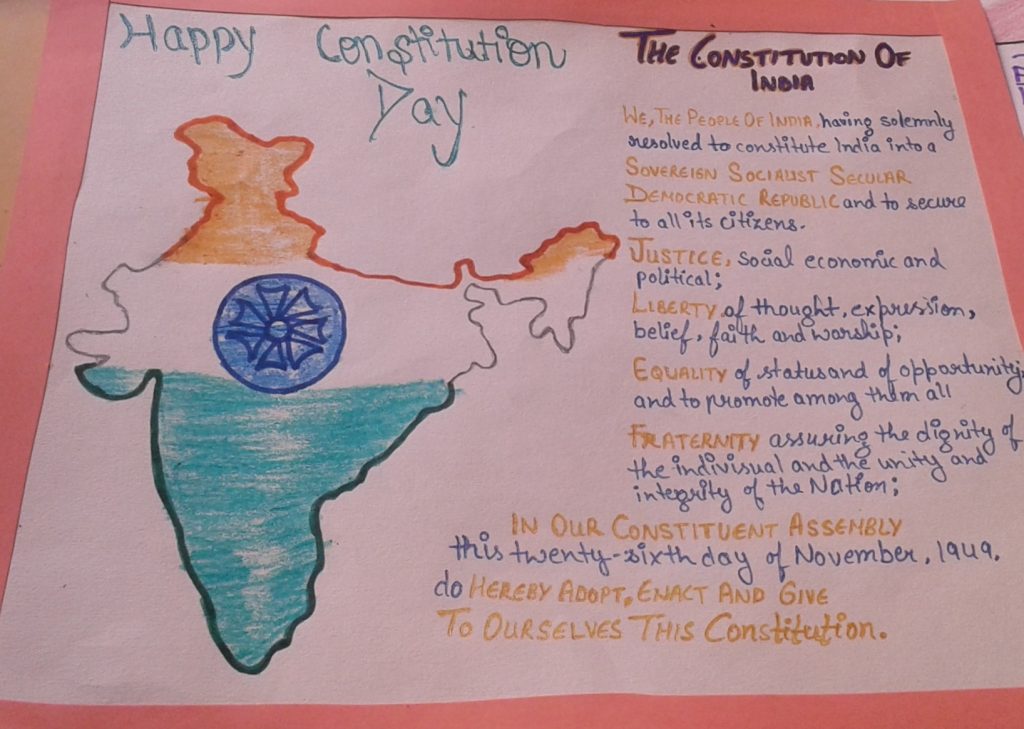 Happy Constitution
Day
THE CONSTITUTION OF
INDIA
WE, THE PEOPLE OF INDIA, having solemnly
resolved to constitute India into a
SOVEREIGN SOCIALIST SECULAR
DEMOCRATIC REPUBLIC and to secure
to all its citizens.
JUSTICE, social economic and
political;
LIBERTY, of thought, expression,
belief, faith and warship;
EQUALITY of status and of opportunity;
and to promote among them all
FRATERNITY assuring the dignity of
the indivisual and the unity and
integrity of the Nation;
IN OUR CONSTITUENT ASSEMBLY
this twenty-sixth day of November, 1949.
do HEREBY ADOPT, ENACT AND GIVE
TO OURSELVES THIS Constitution.